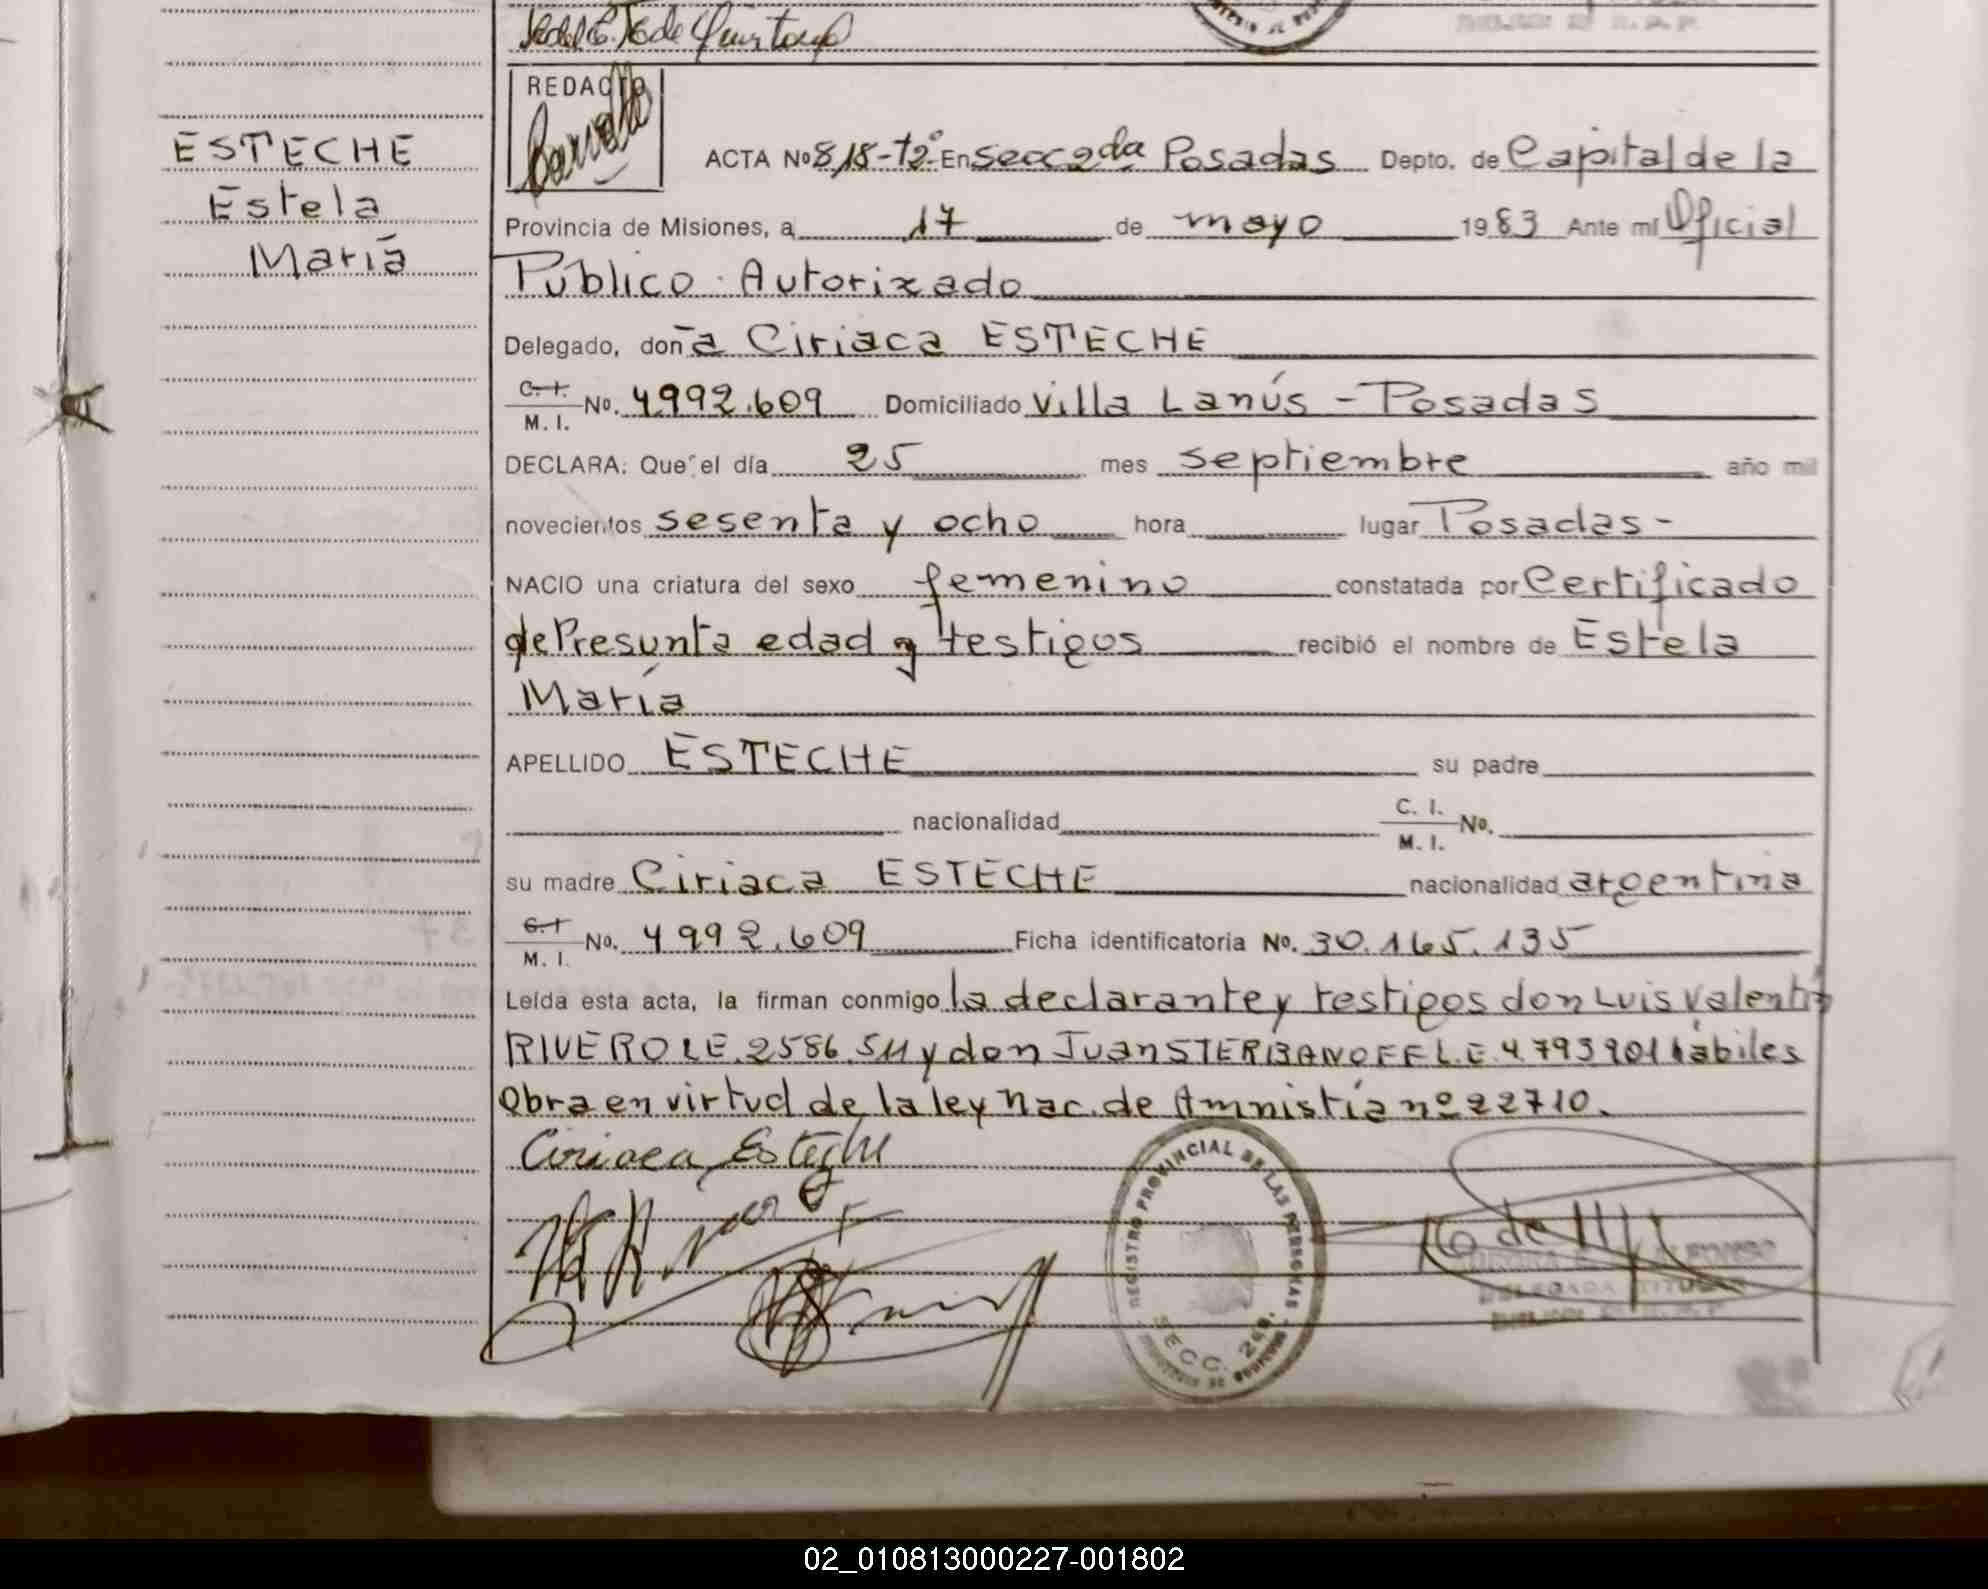 REDACTO
ESTECHE
Estela
María
ACTA No 818-Tº2 En Secc 2da Posadas Depto. de Capital de la
Provincia de Misiones, a 17 de mayo 1983 Ante mí Oficial
Público Autorizado
Delegado, doña Ciriaca ESTECHE
C. I.
M. I. No. 4992.609 Domiciliado Villa Lanús - Posadas
DECLARA: Que el día 25 mes septiembre año mil
novecientos sesenta y ocho hora lugar Posadas -
NACIO una criatura del sexo femenino constatada por Certificado
de Presunta edad y testigos recibió el nombre de Estela
María
APELLIDO ESTECHE su padre
nacionalidad C. I.
M. I. No.
su madre Ciriaca ESTECHE nacionalidad argentina
C. I
M. I. No. 4992.609 Ficha identificatoria No. 30.165.135
Leída esta acta, la firman conmigo la declarante y testigos don Luis Valentín
RIVERO L.E. 2586.511 y don Juan STERBANOFF L.E. 4.793901 hábiles
Obra en virtud de la ley Nac. de Amnistía nº 22710.
Ciriaca Esteche
REGISTRO PROVINCIAL DE LAS PERSONAS
SECC. 2da.
DELEGADA TITULAR
02_010813000227-001802